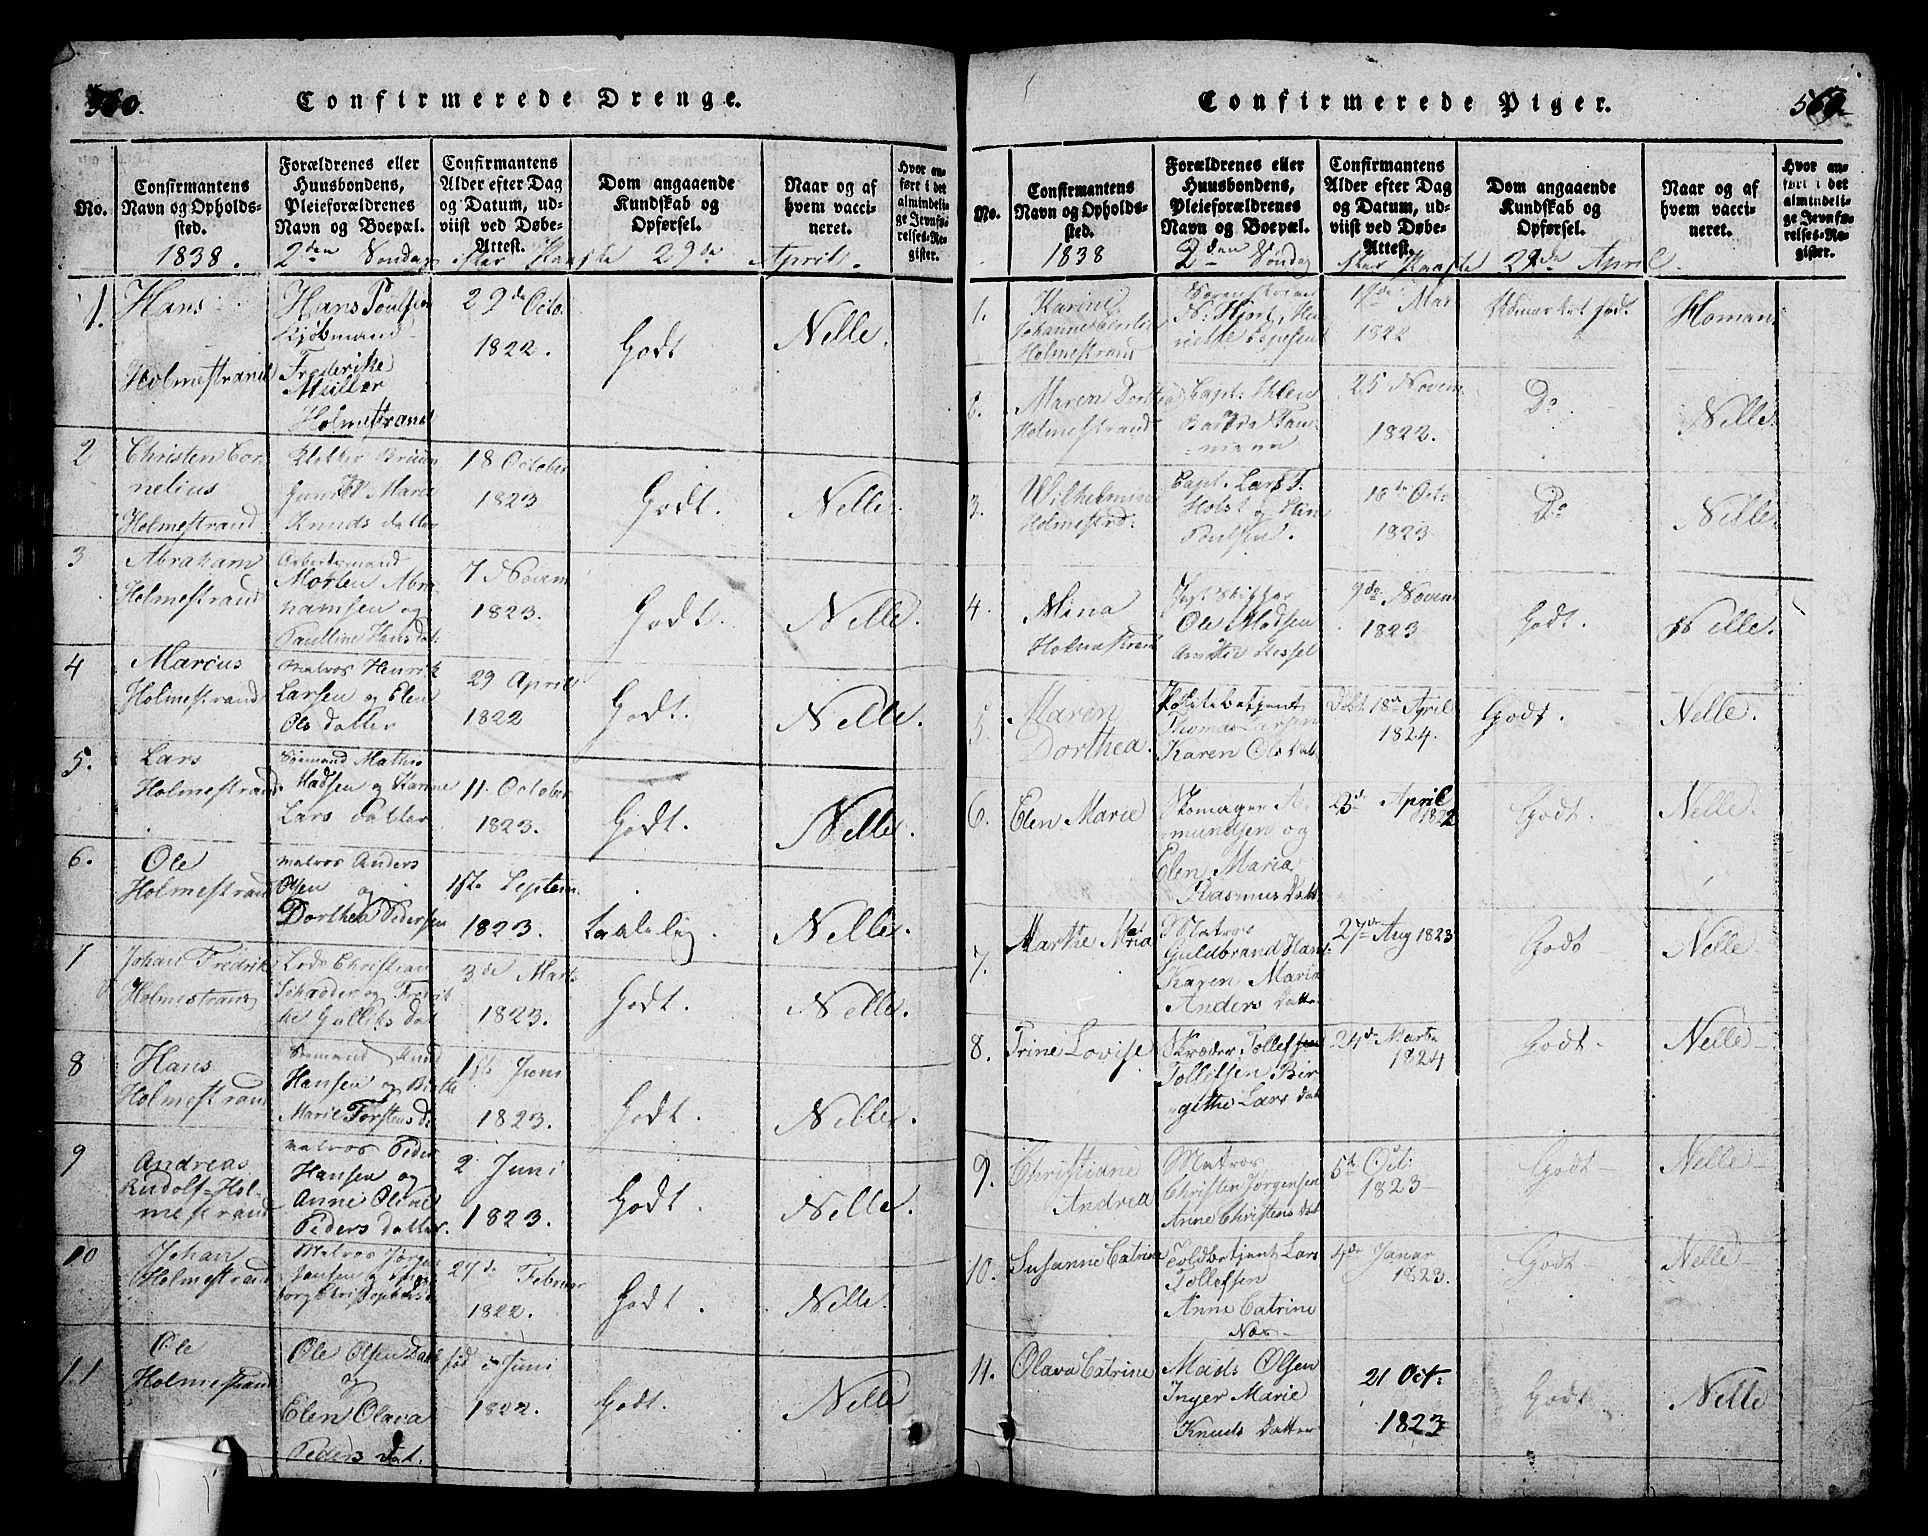 560.
Confirmerede Drenge.
No.
Confirmantens
Navn og Opholds-
sted.
Forældrenes eller
Huusbondens,
Pleieforældrenes
Navn og Boepæl.
Confirmantens
Alder efter Dag
og Datum, ud-
viist ved Døbe-
Attest.
Dom angaaende
Kundskab og
Opførsel.
Naar og af
hvem vacci-
neret.
Hvor an-
ført i det
almindeli-
ge Jevnfø-
relses-Re-
gister.
1838. 2den Søndag efter Paaske 29de April.
1.
Hans
Holmestrand
Hans Poulsen
Kjøbmand
Frederike
Müller
Holmestrand
29de Octo.
1822.
Godt
Nelle.
2
Christen Cor-
nelius
Holmestrand
Maria
Knuds datter
18 October
1823
Godt.
Nelle.
3
Abraham
Holmestrand
Arbeidsmand
Morten Abra-
hamsen og
Paulline Hans dat.
7 Novem
1823.
Godt.
Nelle.
4
Marcus
Holmestrand
Matros Henrik
Larsen og Elen
Ols datter
29 April
1822
Godt.
Nelle.
5.
Lars
Holmestrand
Sømand Mathis
Madsen og Karine
Lars datter
11. October
1823.
Godt.
Nelle.
6.
Ole
Holmestrand
Matros Anders
Olsen og
Dorthea Pedersen
1ste Septem.
1823.
Laalelig.
Nelle.
7
Johan Fredrik
Holmestrand
Lods Christian
Schadder og Fredrik
ke Gullics dat
3de Marts
1823.
Godt.
Nelle.
8
Hans
Holmestrand
Sømand Knud
Hansen og Birthe
Marie Torstens d.
1ste Juni
1823.
Godt.
Nelle.
9
Andreas
Rudolf-Hol-
mestrand
Matros Peder
Hansen og
Anne Oline
Peders datter.
2 Juni
1823.
Godt.
Nelle.
10
Johan
Holmestrand
Matros Jørgen
Jansen og Inge-
borg Christophersd.
27de Februar
1822.
Godt.
Nelle.
11
Ole
Holmestrand
Ole Olsen
og
Elen Olava
Peders dat.
fød i Juni
1822.
Godt.
Nelle
Confirmerede Piger.
No.
Confirmantens
Navn og Opholds-
sted.
Forældrenes eller
Huusbondens,
Pleieforældrenes
Navn og Boepæl.
Confirmantens
Alder efter Dag
og Datum, ud-
viist ved Døbe-
Attest.
Dom angaaende
Kundskab og
Opførsel.
Naar og af
hvem vacci-
neret.
Hvor an-
ført i det
almindeli-
ge Jevnfø-
relses-Re-
gister.
1838 2den Søndag efter Paaske 29de April.
1.
Karine
Johanne Cecilie
Holmestrand
Sorenskriver
N: Hjort, Hen
riette Espesen
17de Mar
1822
Udmærket god.
Homan
2.
Maren Dorthea
Holmestrand
Capt: Ihlen
Barbra Tau-
mann
25 Novem
1822.
Do
Nelle.
3.
Wilhelmine
Holmestrd.
Capt. Lars T.
Holst og Stine
Poulsen.
18de Oct:
1823
Do
Nelle.
4.
Mina
Holmestrand
Jagt Skipper
Ole Madsen
Anette Kessel
9de Novem
1823
Godt.
Nelle.
5.
Maren
Dorthea.
Politibetjent
Thomas Larsen
Karen Ols dat.
Døbt 18de April
1824.
Godt.
Nelle.
6.
Elen Marie
Skomager A-
mundsen og
Elen Maria
Rasmus datt
23de April
1822
Godt.
Nelle.
7.
Marthe Maria
Matros
Guldbrand Hans:
Karen Maria
Anders datt.
27de Aug 1823
Godt
Nelle
8.
Trine Lovise
Skræder Tollefsen
Tollefsen, Bir-
githe Lars dat
24de Marts
1824
Godt.
Nelle
9.
Christiane
Andrea
Matros
Christen Jørgensen
Anne Christens dat
5te Oct:
1823
Godt
Nelle
10.
Susanne Catrine
Toldbetjent Lars
Tollefsen
Anne Catrine
Næs
4de Januar
1823.
Godt
Nelle
11.
Olava Catrine
Mads Olsen
Inger Marie
Knuds datter
21 Oct:
1823
Godt
Nelle